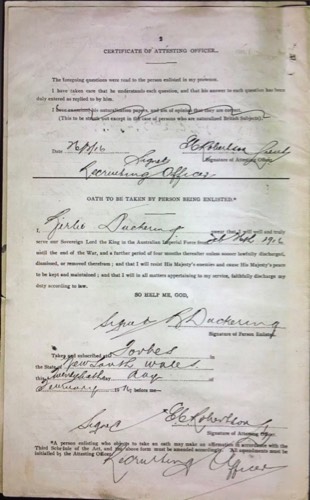 2
CERTIFICATE OF ATTESTING OFFICER.
The foregoing questions were read to the person enlisted in my presence.
I have taken care that he understands each question, and that his answer to each question has been
duly entered as replied to by him.
I have examined his naturalization papers, and am of opinion that they are correct.
(This to be struck out except in the case of persons who are naturalized British Subjects).
Date
Signature of Attesting Officer.
Recruiting Officer
OATH TO BE TAKEN BY PERSON BEING ENLISTED.*
I, Duckering swear that I will well and truly
serve our Sovereign Lord the King in the Australian Imperial Force from 1916
until the end of the War, and a further period of four months thereafter unless sooner lawfully discharged,
dismissed, or removed therefrom; and that I will resist His Majesty's enemies and cause His Majesty's peace
to be kept and maintained; and that I will in all matters appertaining to my service, faithfully discharge my
duty according to law.
SO HELP ME, GOD,
Signed Duckering
Signature of Person Enlisted.
Taken and subscribed at Forbes
the State of New South Wales
this day
February 16 before me—
Signed E Robertson
Signature of Attesting Officer.
*A person enlisting who objects to take an oath may make an affirmation in accordance with the
Third Schedule of the Act, and the above form must be amended accordingly. All amendments must be
initialled by the Attesting Officer.
Recruiting Officer